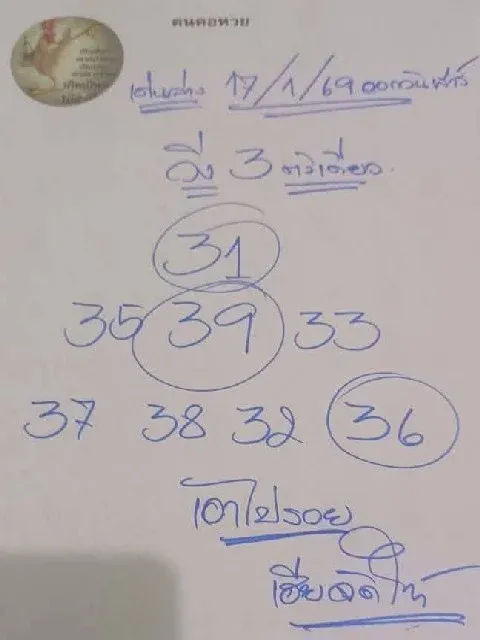 คนคอหวย
เต็งล่าง 17/1/69 ออกวันเสาร์
วิ่ง 3 ตัวเดียว
31
35 39 33
37 38 32 36
เอาไปรวย
เฮียจัดให้